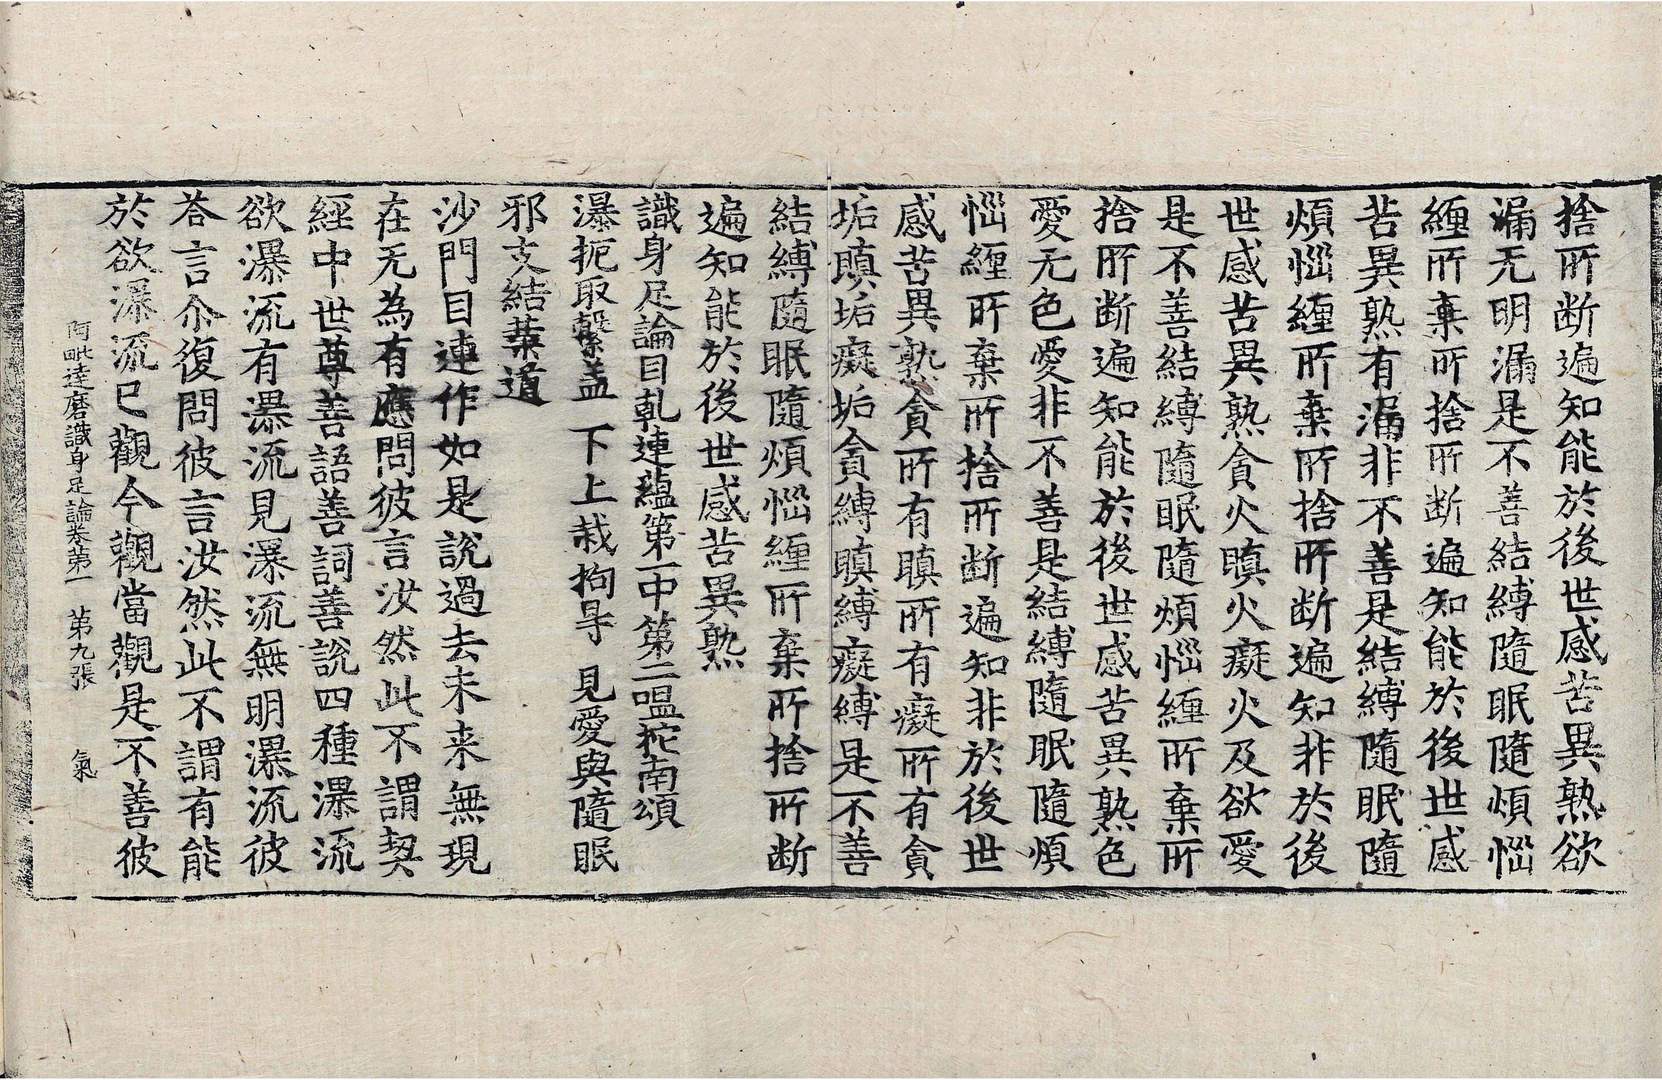 捨所断遍知能於後世感苦異熟欲
漏无明漏是不善結縛隨眠隨煩惱
纏所棄所捨所断遍知能於後世感
苦異熟有漏非不善是結縛隨眠隨
煩惱纏所棄所捨所断遍知非於後
世感苦異熟貪火瞋火癡火及欲愛
是不善結縛隨眠隨煩惱纏所棄所
捨所断遍知能於後世感苦異熟色
愛无色愛非不善是結縛隨眠隨煩
惱纏所棄所捨所断遍知非於後世
感苦異熟貪所有瞋所有癡所有貪
垢瞋垢癡垢貪縛瞋縛癡縛是不善
結縛隨眠隨煩惱纏所棄所捨所断
遍知能於後世感苦異熟
識身足論目乹連蘊第一中第二嗢拕南頌
瀑扼取繫盖 下上栽拘㝵 見愛與隨眠
邪支結業道
沙門目連作如是說過去未来無現
在无為有應問彼言汝然此不謂契
經中世尊善語善詞善說四種瀑流
欲瀑流有瀑流見瀑流無明瀑流彼
荅言尒復問彼言汝然此不謂有能
於欲瀑流已觀今觀當觀是不善彼
阿毗達磨識身足論卷第一 第九張 氣